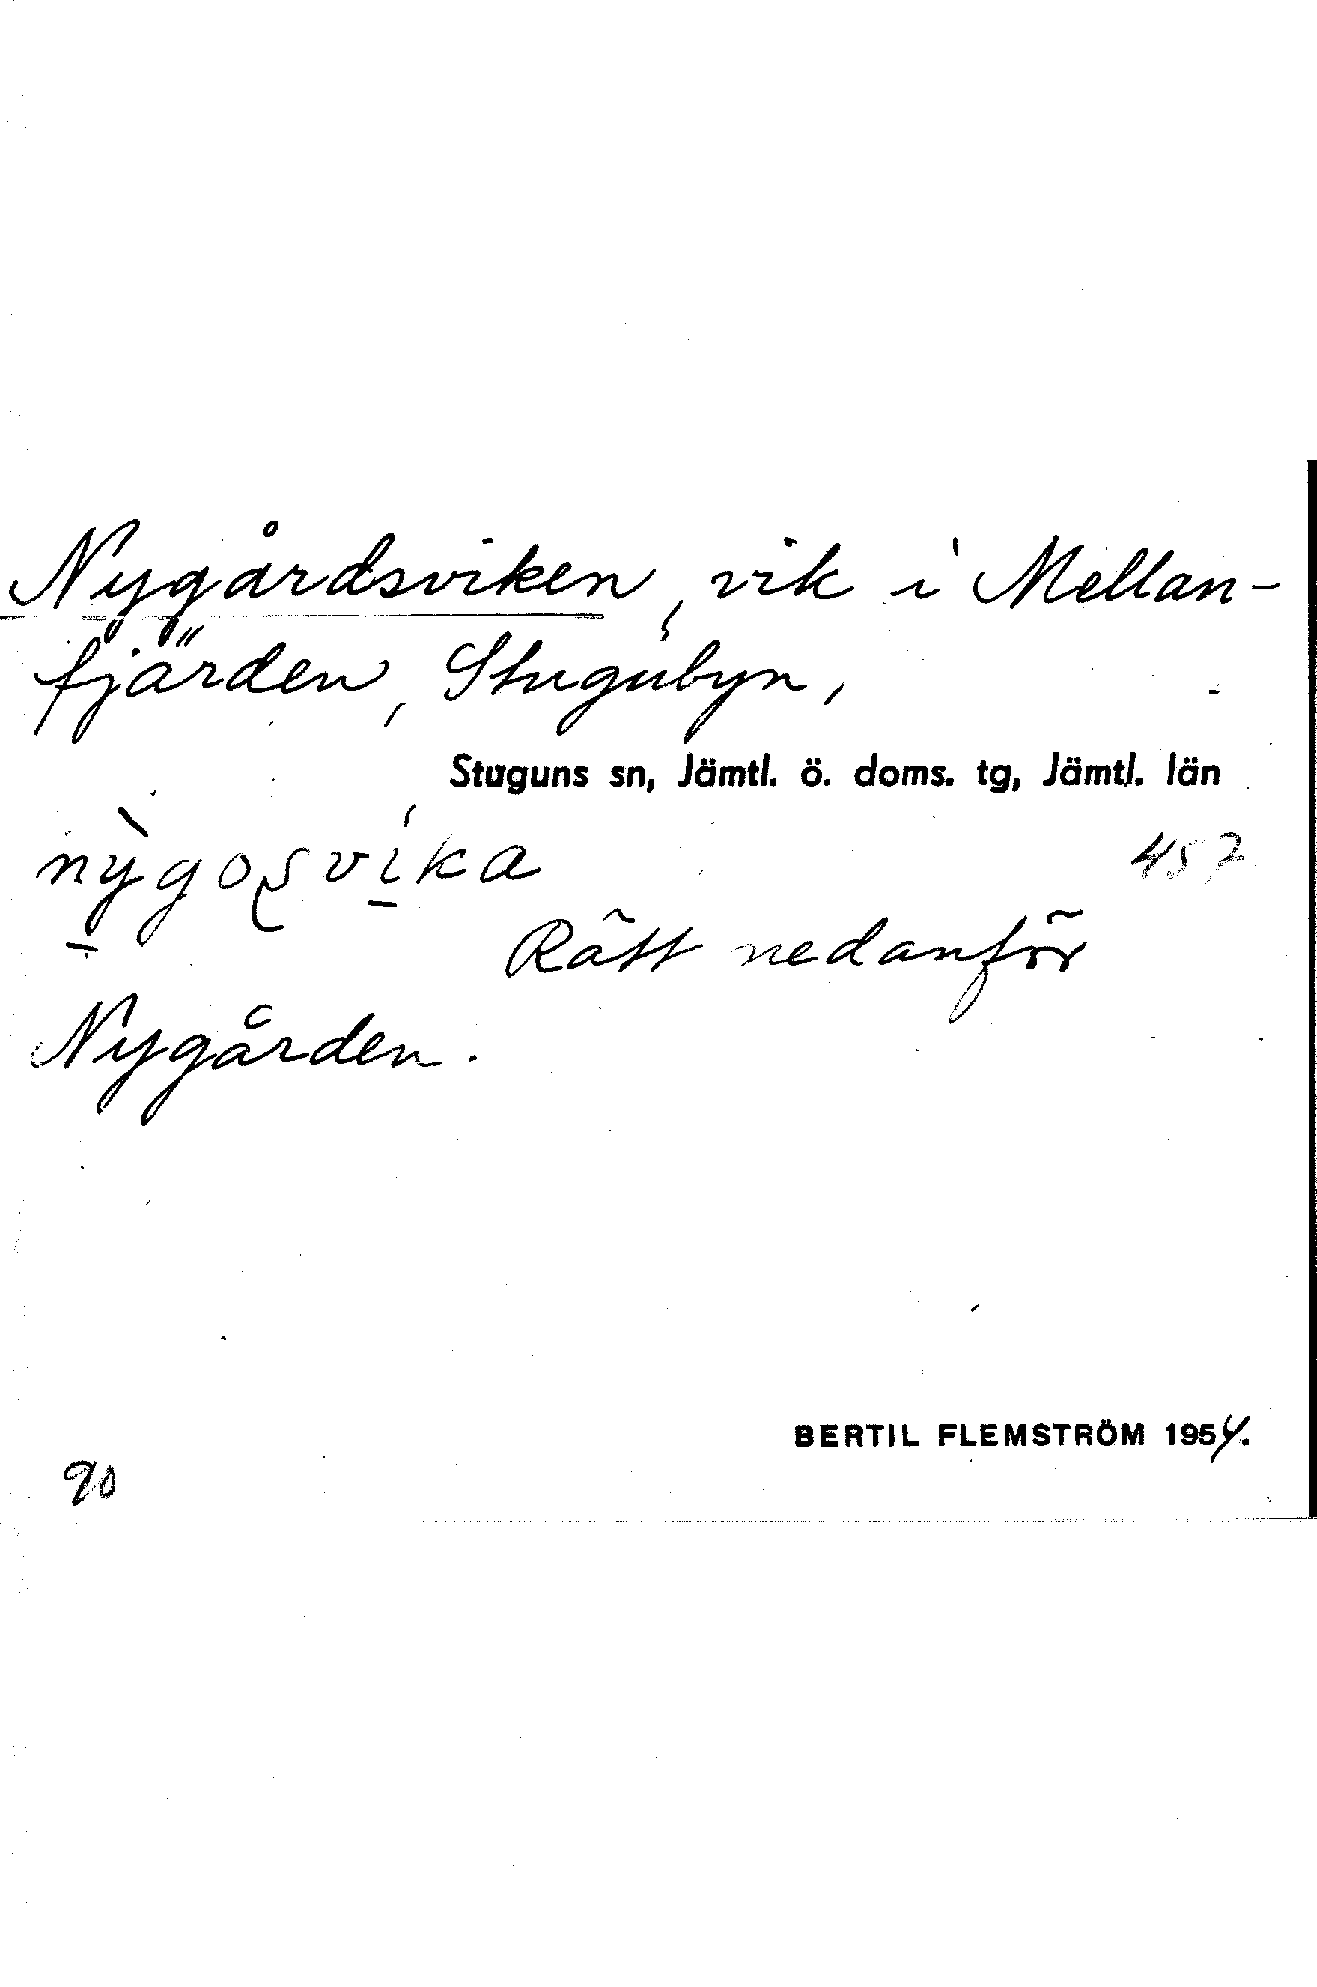 Nygårdsviken, vik i Mellan-
fjärden, Stugubyn,
Stuguns sn, Jämtl. ö. doms. tg, Jämtl. län
457
Rätt nedanför
Nygården.
BERTIL FLEMSTRÖM 1954.
90